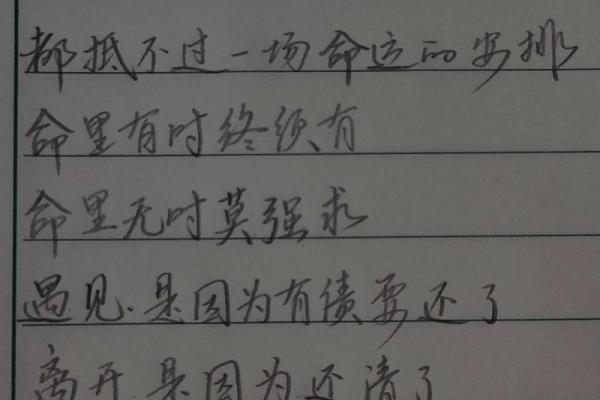 都抵不过一场命运的安排
命里有时终须有
命里无时莫强求
遇见.是因为有债要还了
离开.是因为还清了